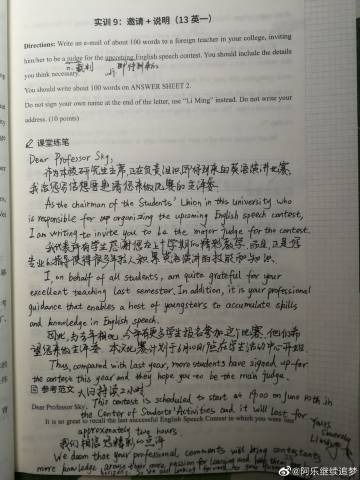 实训 9：邀请 + 说明（13 英一）
Directions: Write an e-mail of about 100 words to a foreign teacher in your college, inviting
him/her to be a judge for the upcoming English speech contest. You should include the details
you think necessary.
n. 裁判 即将到来的
You should write about 100 words on ANSWER SHEET 2.
Do not sign your own name at the end of the letter, use "Li Ming" instead. Do not write your
address. (10 points)
课堂练笔
Dear Professor Sky,
作为本校研究生主席，正在负责组织即将到来的英语演讲比赛，
我给您写信想要邀请您来做比赛的主评委
As the chairman of the Students' Union in this university who
is responsible for organizing the upcoming English speech contest,
I am writing to invite you to be the major judge for the contest.
我代表所有学生感谢您在上个学期的精彩教学，而且，正是您
专业的指导使得很多年轻人积累英语演讲的技能和知识。
I, on behalf of all students, am quite grateful for your
excellent teaching last semester. In addition, it is your professional
guidance that enables a host of youngsters to accumulate skills
and knowledge in English speech.
因此，与去年相比，今年有更多学生报名参加这个比赛，他们希
望您来做主评委。本次比赛计划于6月10日1点在学生活动中心开始
Thus, compared with last year, more students have signed up for
the contest this year and they hope you to be the main judge.
大约持续2小时
参考范文
This contest is scheduled to start at 1900 on June 10th in
Dear Professor Sky,
the Center of Students' Activities and it will last for
It is so great to recall the last successful English Speech Contest in which you were
approximately two hours.
Yours
Sincerely
Li Ming
我们相信您精彩的点评
We deem that your professional comments will bring contestants
more knowledge, arouse their more passion for learning and
looking forward to your
@阿乐继续追梦